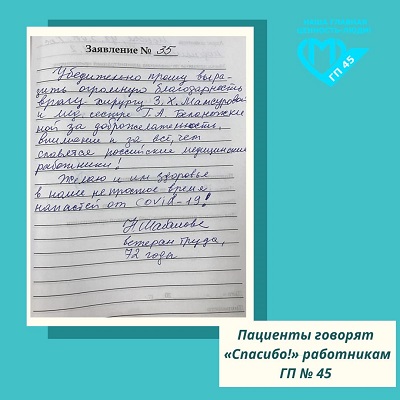 НАША ГЛАВНАЯ
ЦЕННОСТЬ - ЛЮДИ!
ГП 45
Заявление № 35
Убедительно прошу выра-
зить огромную благодарность
врачу хирургу З. Х. Мансуровой
и мед. сестре Г. А. Белоножки-
ной за доброжелательность,
внимание и за всё, чем
славятся российские медицинские
работники!
Желаю и им здоровья
в наше непростое время
напастей от COVID-19!
Н Шабанова
ветеран труда,
72 года
Пациенты говорят
«Спасибо!» работникам
ГП № 45